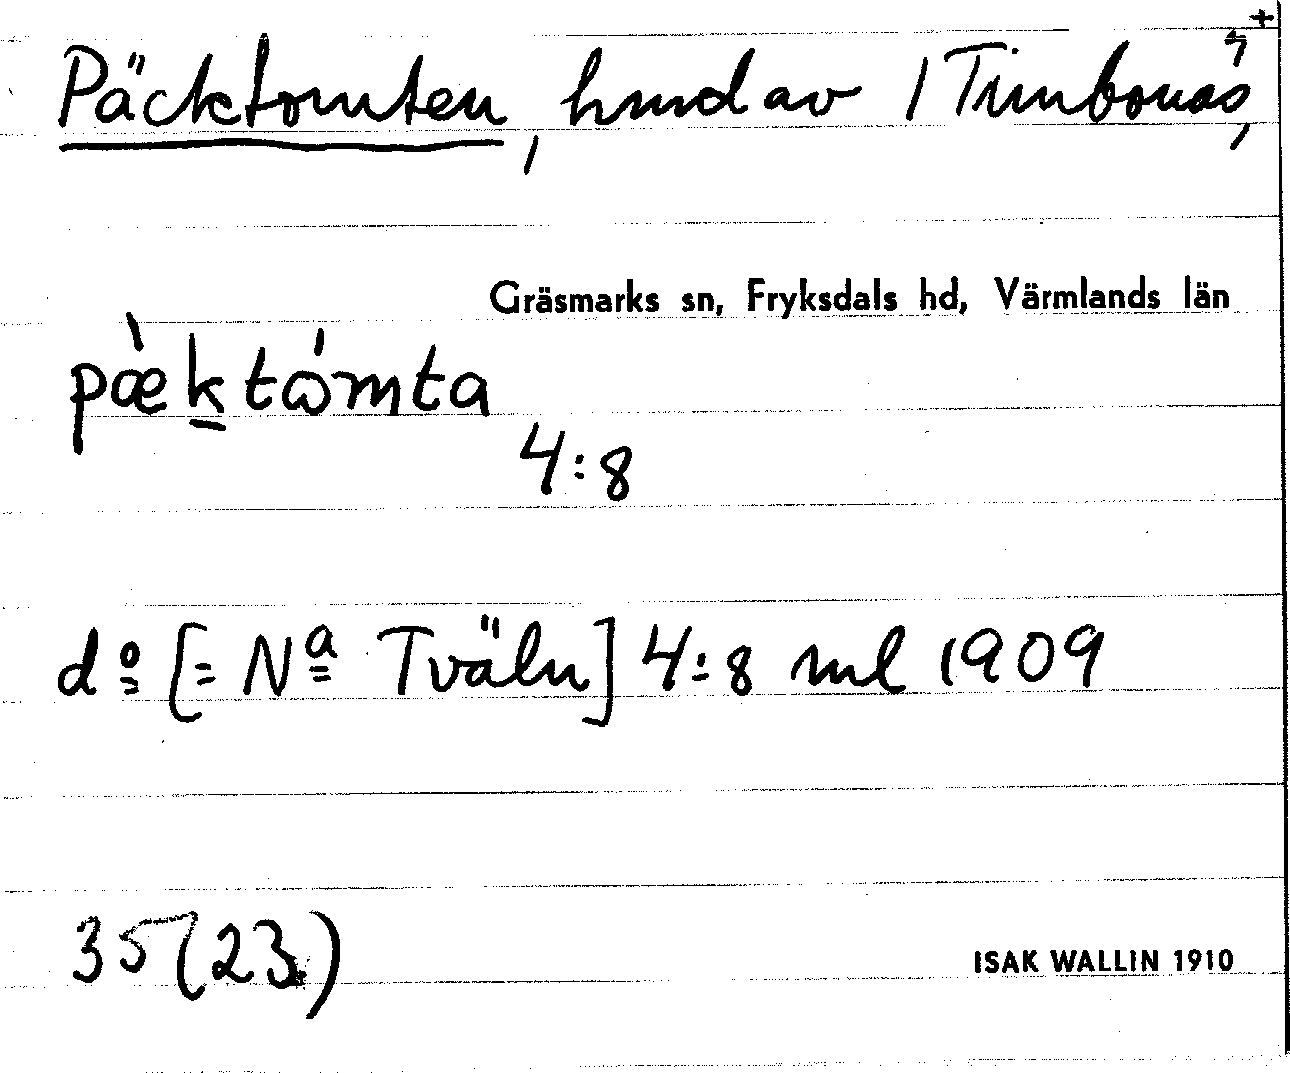 +
Päcktomten, hmd av 1 Timbonäs 4,
Gräsmarks sn, Fryksdals hd, Värmlands län
pæ̀któmta
4:8
dº [= Nª Tväln] 4:8 ml 1909
35 (23.)
ISAK WALLIN 1910